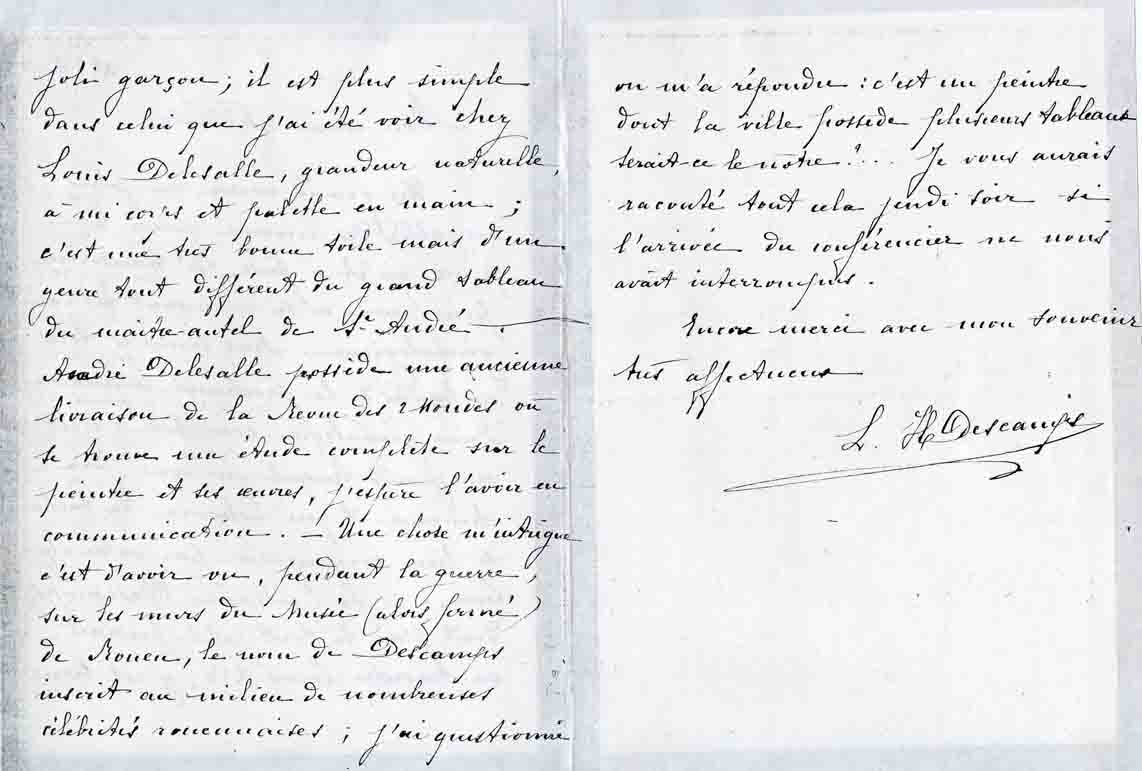 joli garçon ; il est plus simple
dans celui que j'ai été voir chez
Louis Delesalle, grandeur naturelle,
à mi corps et palette en main ;
c'est une très bonne toile mais d'un
genre tout différent du grand tableau
du maître-autel de St André. —
André Delesalle possède une ancienne
livraison de la Revue des 2 Mondes où
se trouve une étude complète sur le
peintre et ses œuvres, j'espère l'avoir en
communication. — Une chose m'intrigue
c'est d'avoir vu, pendant la guerre,
sur les murs du Musée (alors fermé)
de Rouen, le nom de Descamps
inscrit au milieu de nombreuses
célébrités rouennaises ; j'ai questionné
on m'a répondu : c'est un peintre
dont la ville possède plusieurs tableaux
serait-ce le nôtre ?... Je vous aurais
raconté tout cela jeudi soir si
l'arrivée du conférencier ne nous
avait interrompus.
Encore merci avec mon souvenir
très affectueux
L. H Descamps